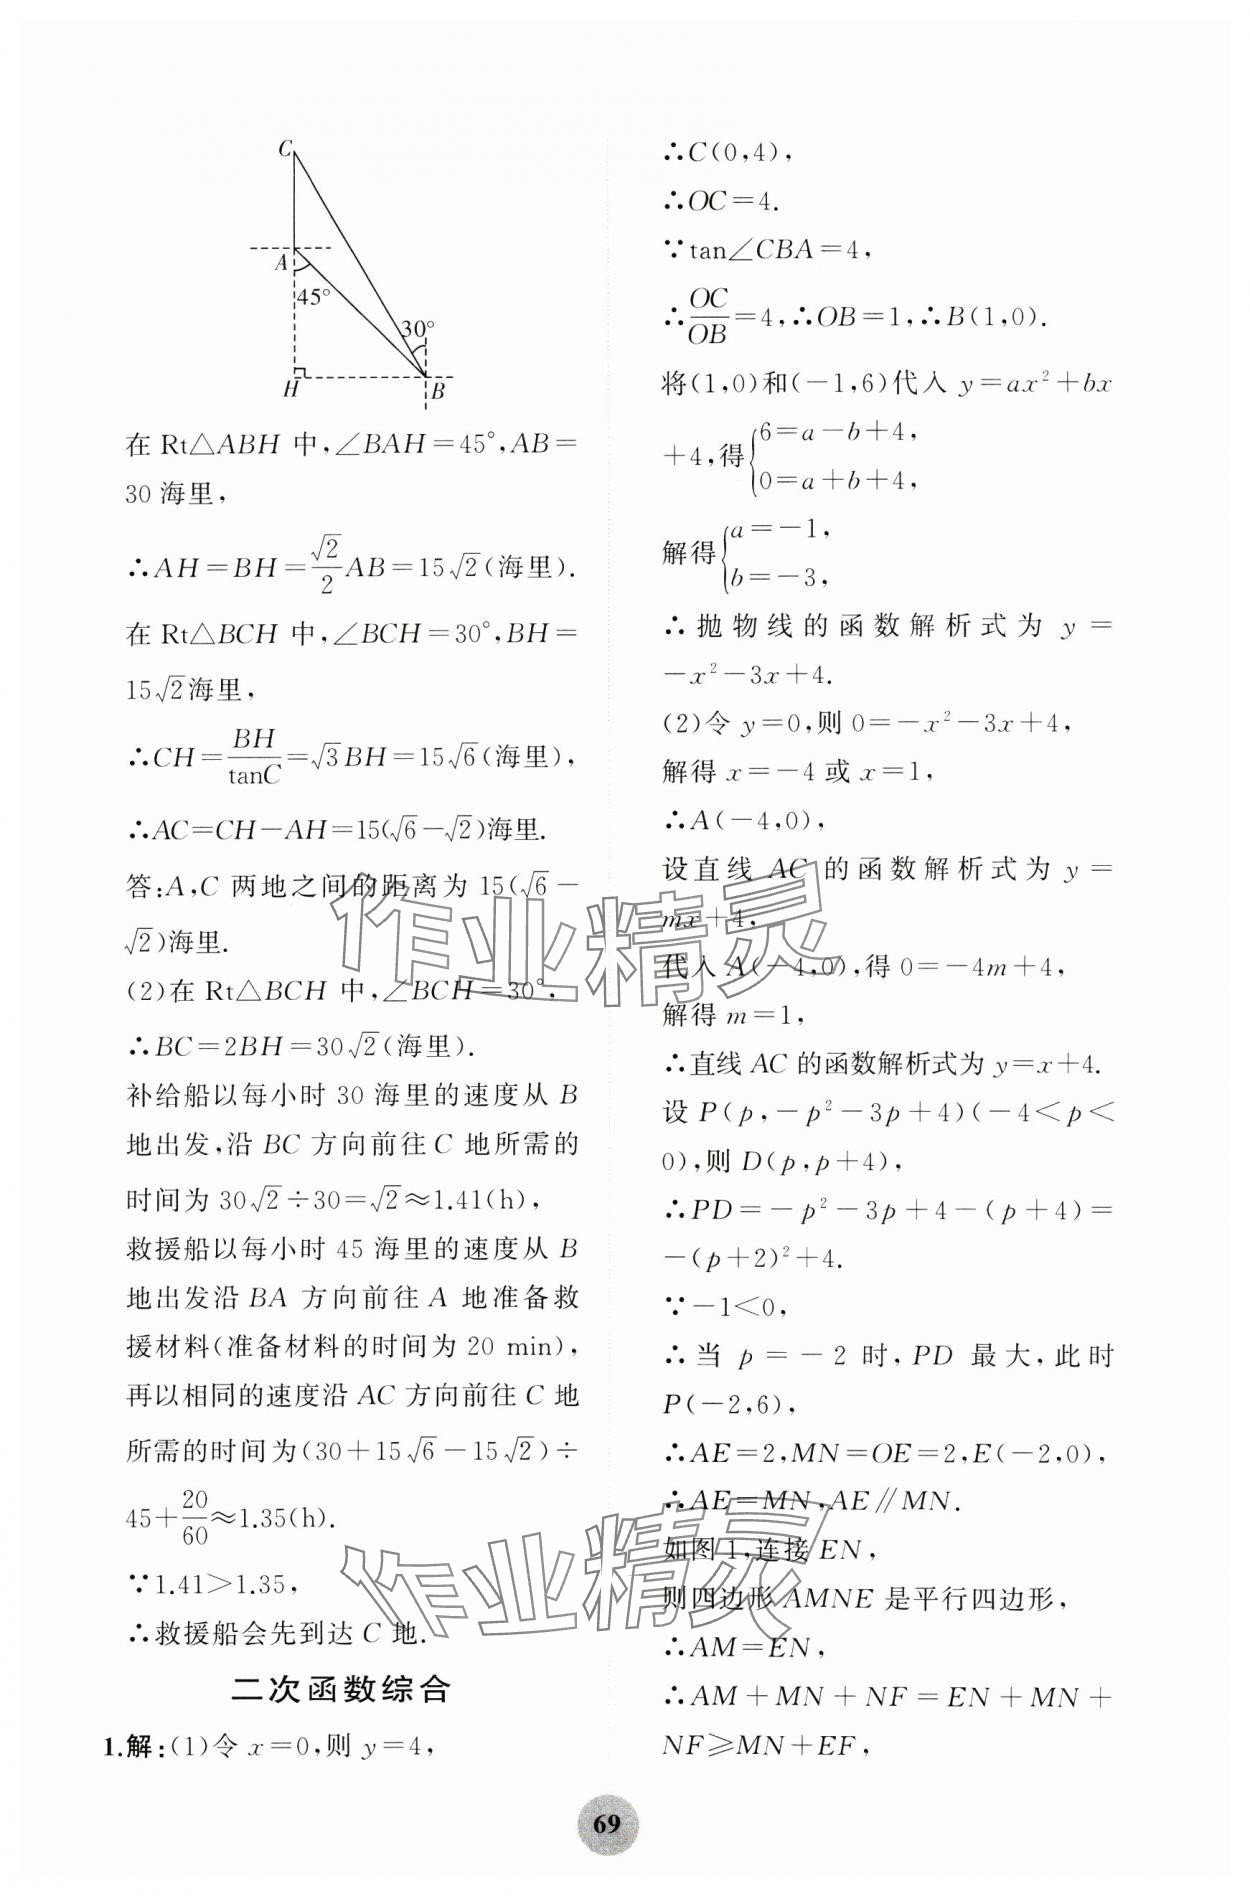 C
A
45°
30°
H
B
在 Rt△ABH 中,∠BAH=45°,AB=
30 海里,
∴AH=BH=√2/2AB=15√2(海里).
在 Rt△BCH 中,∠BCH=30°,BH=
15√2海里,
∴CH=BH/tanC=√3BH=15√6(海里),
∴AC=CH-AH=15(√6-√2)海里.
答:A,C 两地之间的距离为 15(√6-
√2)海里.
(2)在 Rt△BCH 中,∠BCH=30°,
∴BC=2BH=30√2(海里).
补给船以每小时 30 海里的速度从 B
地出发,沿 BC 方向前往 C 地所需的
时间为 30√2÷30=√2≈1.41(h),
救援船以每小时 45 海里的速度从 B
地出发沿 BA 方向前往 A 地准备救
援材料(准备材料的时间为 20 min),
再以相同的速度沿 AC 方向前往 C 地
所需的时间为(30+15√6-15√2)÷
45+20/60≈1.35(h).
∵1.41>1.35,
∴救援船会先到达 C 地.
二次函数综合
1.解:(1)令 x=0,则 y=4,
∴C(0,4),
∴OC=4.
∵tan∠CBA=4,
∴OC/OB=4,∴OB=1,∴B(1,0).
将(1,0)和(-1,6)代入 y=ax²+bx
+4,得{6=a-b+4,
0=a+b+4,
解得{a=-1,
b=-3,
∴抛物线的函数解析式为 y=
-x²-3x+4.
(2)令 y=0,则 0=-x²-3x+4,
解得 x=-4 或 x=1,
∴A(-4,0),
设直线 AC 的函数解析式为 y=
mx+4,
代入 A(-4,0),得 0=-4m+4,
解得 m=1,
∴直线 AC 的函数解析式为 y=x+4.
设 P(p,-p²-3p+4)(-4<p<
0),则 D(p,p+4),
∴PD=-p²-3p+4-(p+4)=
-(p+2)²+4.
∵-1<0,
∴当 p=-2 时,PD 最大,此时
P(-2,6),
∴AE=2,MN=OE=2,E(-2,0),
∴AE=MN,AE∥MN.
如图 1,连接 EN,
则四边形 AMNE 是平行四边形,
∴AM=EN,
∴AM+MN+NF=EN+MN+
NF≥MN+EF,
69
作业精灵
作业精灵